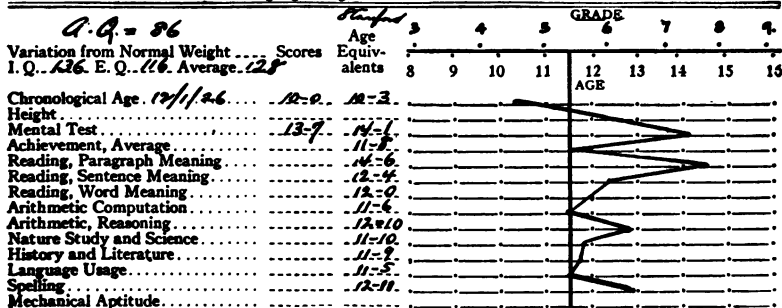 Stanford GRADE
A.Q. = 86 Age 3 4 5 6 7 8 9
Variation from Normal Weight .... Scores Equiv-
I. Q. 136 E. Q. 116 Average 128 alents 8 9 10 11 12 13 14 15
AGE
Chronological Age 12/1/26 10-0 10-3
Height
Mental Test 13-9 14-1
Achievement, Average 11-8
Reading, Paragraph Meaning 14-6
Reading, Sentence Meaning 12-4
Reading, Word Meaning 12-0
Arithmetic Computation 11-6
Arithmetic, Reasoning 12-10
Nature Study and Science 11-10
History and Literature 11-9
Language Usage 11-5
Spelling 12-11
Mechanical Aptitude